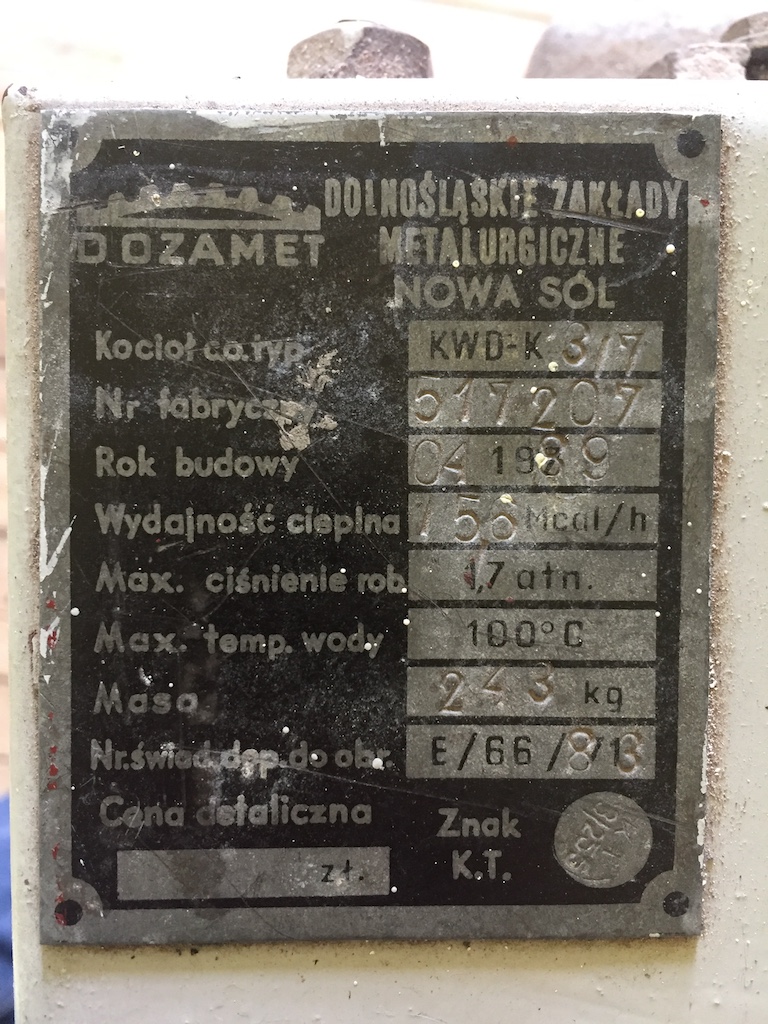 DOZAMET
DOLNOŚLĄSKIE ZAKŁADY
METALURGICZNE
NOWA SÓL
Kocioł c.o. typ KWD-K 3/7
Nr fabryczny 517207
Rok budowy 04 1989
Wydajność cieplna 156 Mcal/h
Max. ciśnienie rob. 1,7 atn.
Max. temp. wody 100°C
Masa 243 kg
Nr. świad. dop. do obr. E/66/
Cena detaliczna
zł.
Znak
K.T.